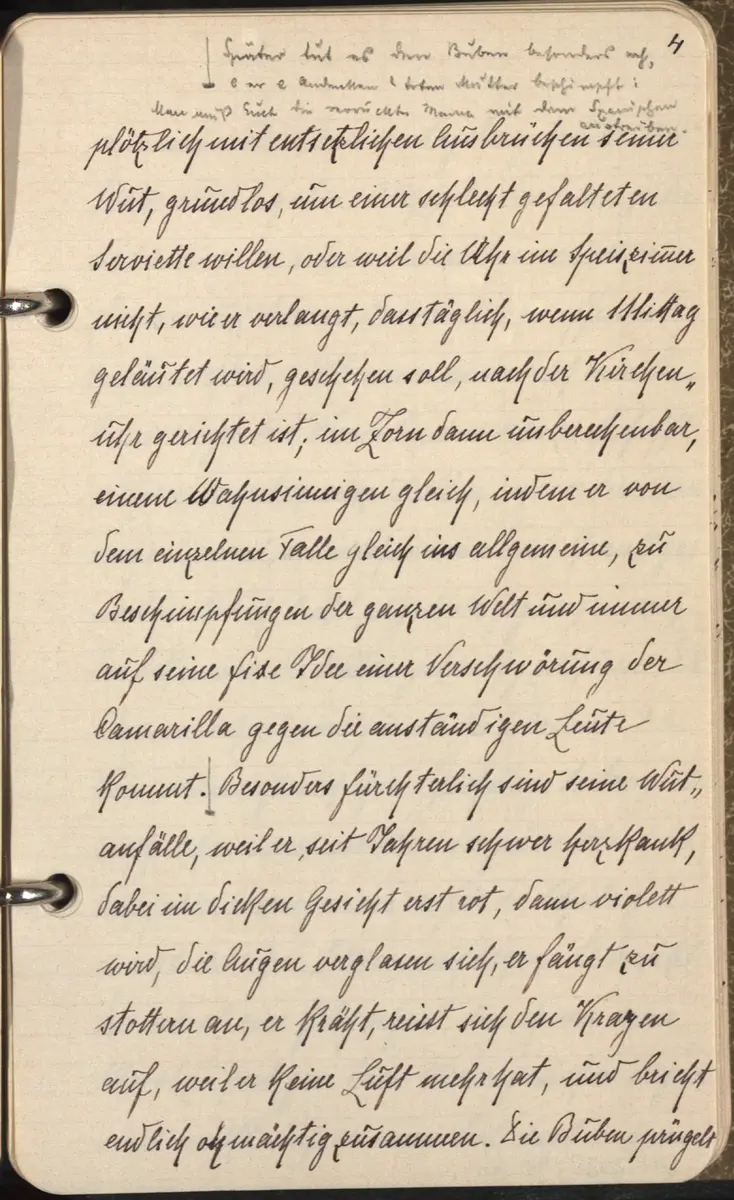 4
Später tut es den Buben besonders weh,
er Andenken toten Mutter beschimpft:
Man muß Euch die verrückte Mama mit dem Spanischen
austreiben.
plötzlich mit entsetzlichen Ausbrüchen seiner
Wut, grundlos, um einer schlecht gefalteten
Serviette willen, oder weil die Uhr im Speiszimmer
nicht, wie er verlangt, dass täglich, wenn Mittag
geläutet wird, geschehen soll, nach der Kirchen„
uhr gerichtet ist; im Zorn dann unberechenbar,
einem Wahnsinnigen gleich, indem er von
dem einzelnen Falle gleich ins allgemeine, zu
Beschimpfungen der ganzen Welt und immer
auf seine fixe Idee einer Verschwörung der
Camarilla gegen die anständigen Leute
kommt. Besonders fürchterlich sind seine Wut„
anfälle, weil er, seit Jahren schwer herzkank,
dabei im dicken Gesicht erst rot, dann violett
wird, die Augen verglasen sich, er fängt zu
stottern an, er kräht, reisst sich den Kragen
auf, weil er keine Luft mehr hat, und bricht
endlich ohmächtig zusammen. Die Buben prügelt